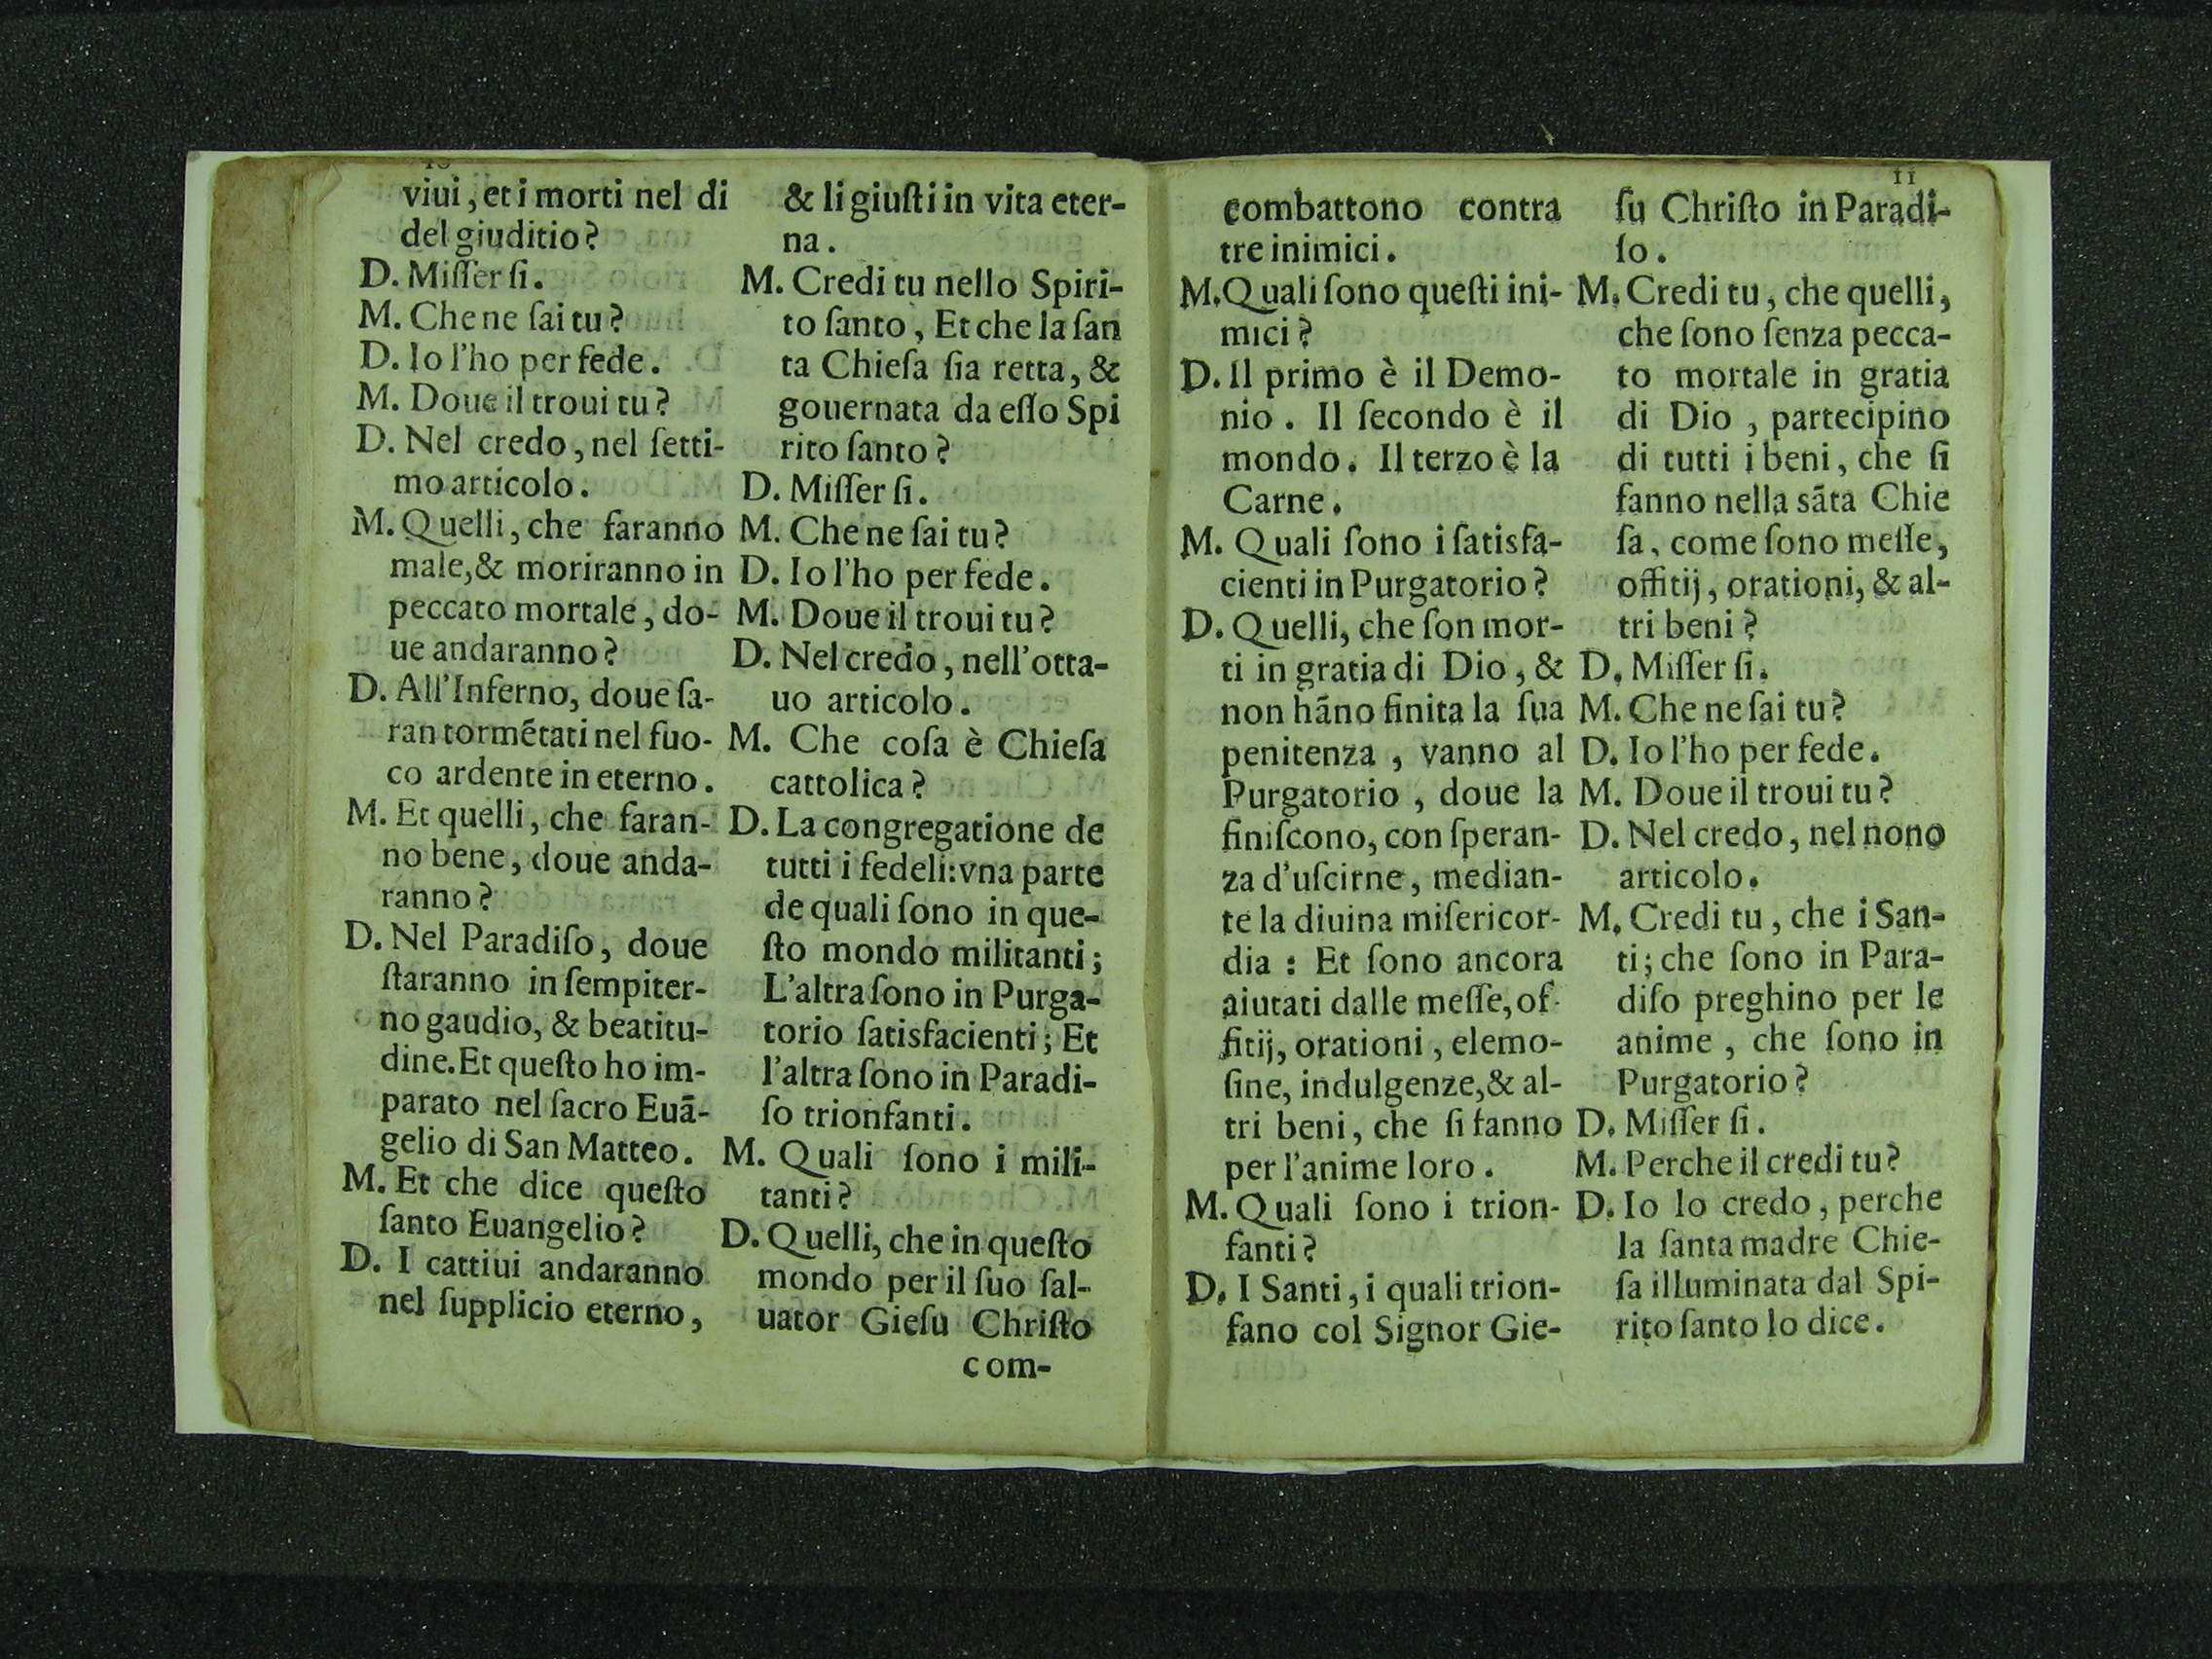 viui, et i morti nel di
del giuditio?
D. Miſſer ſi.
M. Che ne ſai tu?
D. Io l'ho per fede.
M. Doue il troui tu?
D. Nel credo, nel ſetti-
mo articolo.
M. Quelli, che faranno
male, & moriranno in
peccato mortale, do-
ue andaranno?
D. All'Inferno, doue ſa-
ran tormẽtati nel fuo-
co ardente in eterno.
M. Et quelli, che faran-
no bene, doue anda-
ranno?
D. Nel Paradiſo, doue
ſtaranno in ſempiter-
no gaudio, & beatitu-
dine. Et queſto ho im-
parato nel ſacro Euã-
gelio di San Matteo.
M. Et che dice queſto
ſanto Euangelio?
D. I cattiui andaranno
nel ſupplicio eterno,
& li giuſti in vita eter-
na.
M. Credi tu nello Spiri-
to ſanto, Et che la ſan
ta Chieſa ſia retta, &
gouernata da eſſo Spi
rito ſanto?
D. Miſſer ſi.
M. Che ne ſai tu?
D. Io l'ho per fede.
M. Doue il troui tu?
D. Nel credo, nell'otta-
uo articolo.
M. Che coſa è Chieſa
cattolica?
D. La congregatione de
tutti i fedeli: vna parte
de quali ſono in que-
ſto mondo militanti;
L'altra ſono in Purga-
torio ſatisfacienti; Et
l'altra ſono in Paradi-
ſo trionfanti.
M. Quali ſono i mili-
tanti?
D. Quelli, che in queſto
mondo per il ſuo ſal-
uator Gieſu Chriſto
com-
11
combattono contra
tre inimici.
M. Quali ſono queſti ini-
mici?
D. Il primo è il Demo-
nio. Il ſecondo è il
mondo. Il terzo è la
Carne.
M. Quali ſono i ſatisfa-
cienti in Purgatorio?
D. Quelli, che ſon mor-
ti in gratia di Dio, &
non hãno finita la ſua
penitenza, vanno al
Purgatorio, doue la
finiſcono, con ſperan-
za d'uſcirne, median-
te la diuina miſericor-
dia: Et ſono ancora
aiutati dalle meſſe, of-
fitij, orationi, elemo-
ſine, indulgenze, & al-
tri beni, che ſi fanno
per l'anime loro.
M. Quali ſono i trion-
fanti?
D. I Santi, i quali trion-
fano col Signor Gie-
ſu Chriſto in Paradi-
ſo.
M. Credi tu, che quelli,
che ſono ſenza pecca-
to mortale in gratia
di Dio, partecipino
di tutti i beni, che ſi
fanno nella sãta Chie
ſa, come ſono meſſe,
offitij, orationi, & al-
tri beni?
D. Miſſer ſi.
M. Che ne ſai tu?
D. Io l'ho per fede.
M. Doue il troui tu?
D. Nel credo, nel nono
articolo.
M. Credi tu, che i San-
ti; che ſono in Para-
diſo preghino per le
anime, che ſono in
Purgatorio?
D. Miſſer ſi.
M. Perche il credi tu?
D. Io lo credo, perche
la ſanta madre Chie-
ſa illuminata dal Spi-
rito ſanto lo dice.